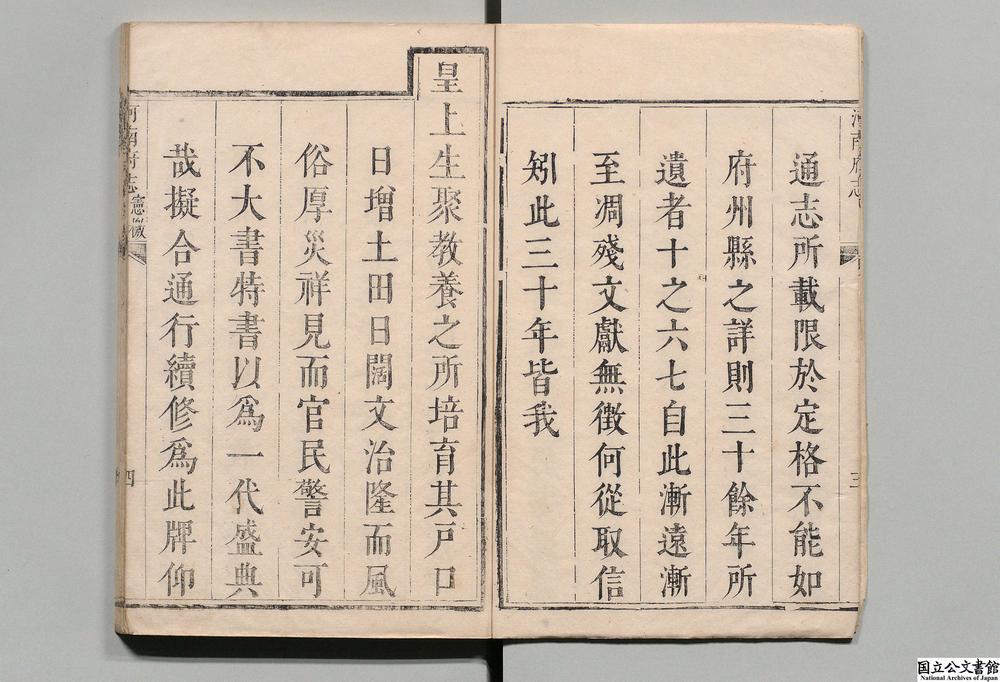 河南府志
三
通志所載限於定格不能如
府州縣之詳則三十餘年所
遺者十之六七自此漸遠漸
至凋殘文獻無徵何從取信
矧此三十年皆我
皇上生聚教養之所培育其戸口
日增土田日闊文治隆而風
俗厚災祥見而官民警安可
不大書特書以爲一代盛典
哉擬合通行續修爲此牌仰
河南府志
憲檄
四
国立公文書館
National Archives of Japan